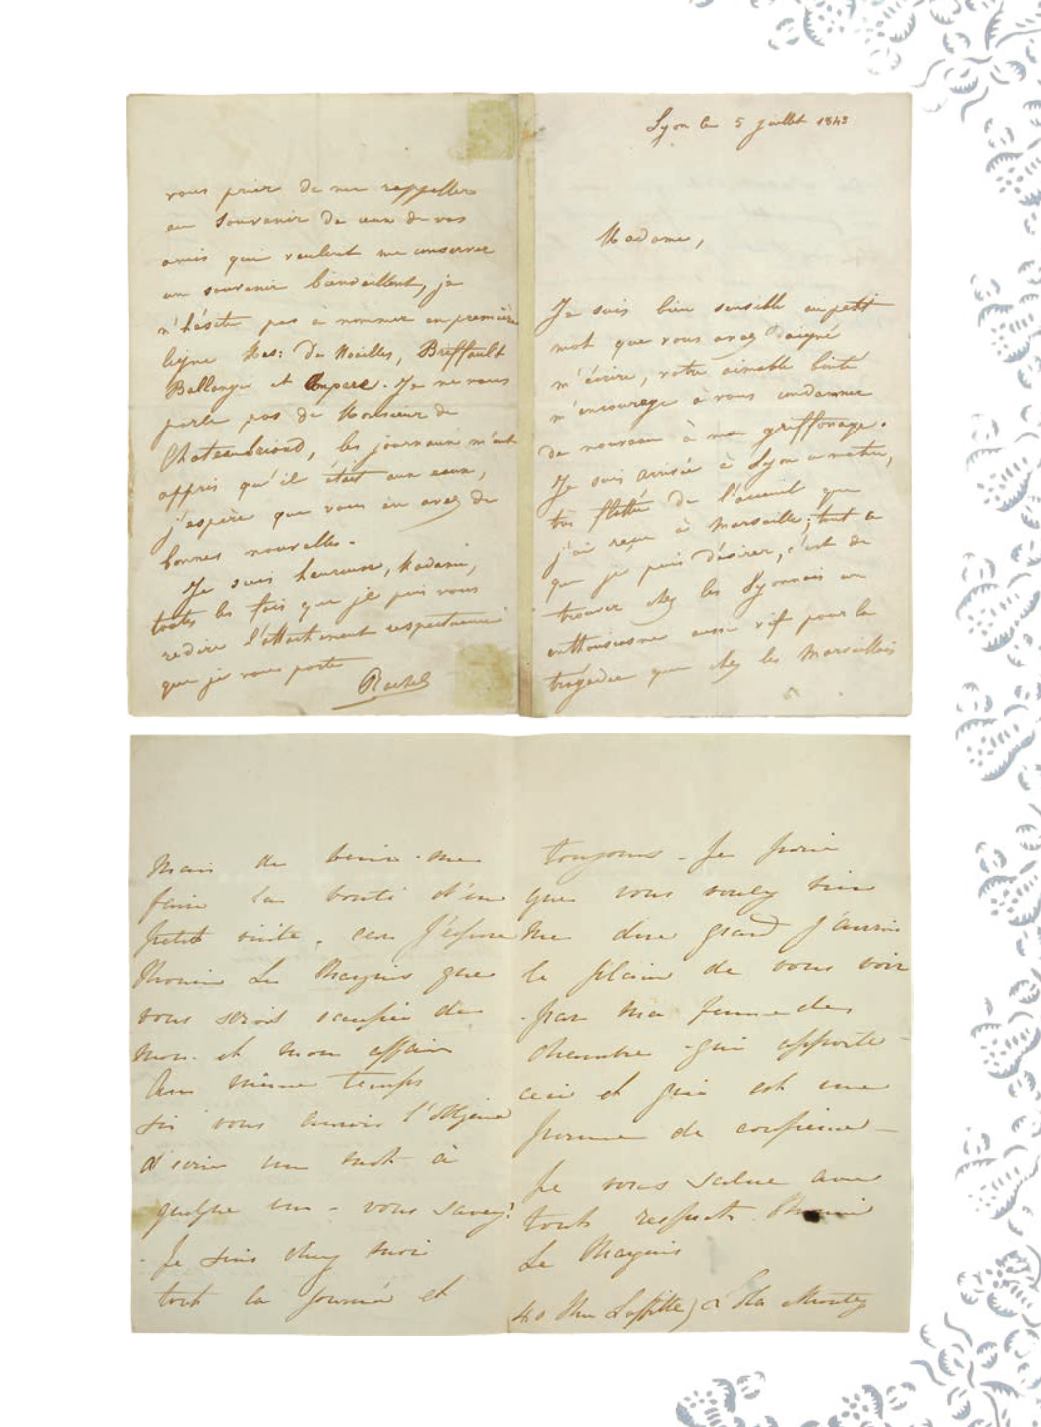 vous prier de me rappeller
au souvenir de ceux de vos
amis qui veulent me conserver
un souvenir bienveillant, je
n'hésite pas à nommer en première
ligne Mes: De Noailles, Briffault
Ballanger et Ampere. Je ne vous
parle pas de Monsieur de
Chateaubriand, les journaux m'ont
appris qu'il était aux eaux,
j'espère que vous en avez de
bonnes nouvelles.
Je suis heureuse, Madame,
toutes les fois que je puis vous
redire l'attachement respectueux
que je vous porte
Rachel
Lyon le 5 juillet 1843
Madame,
Je suis bien sensible au petit
mot que vous avez daigné
m'écrire, votre aimable bonté
m'encourage à vous condamner
de nouveau à mon griffonage.
Je suis arrivée à Lyon ce matin,
très flattée de l'accueil que
j'ai reçu à Marseille; tout ce
que je puis désirer, c'est de
trouver chez les Lyonnais un
enthousiasme aussi vif pour la
tragédie que chez les Marseillais
Mais de venir me
faire la bonté d'une
petit visite, car j'espere
Monsieur Le Marquis que
vous serois occupée de
moi et mon affair
Au même temps
si vous aurois l'obligeance
d'ecrire un mot à
quelque un - vous savez?
- Je suis chez moi
tout la journée et
toujours - Je prie
que vous voulez bien
me dire quand j'aurois
le plaisir de vous voir
par ma femme de
chambre qui apporte
ceci et qui est une
personne de confience -
Je vous salue avec
touts respects Monsieur
Le Marquis
40 Rue Laffitte) Lola Montez